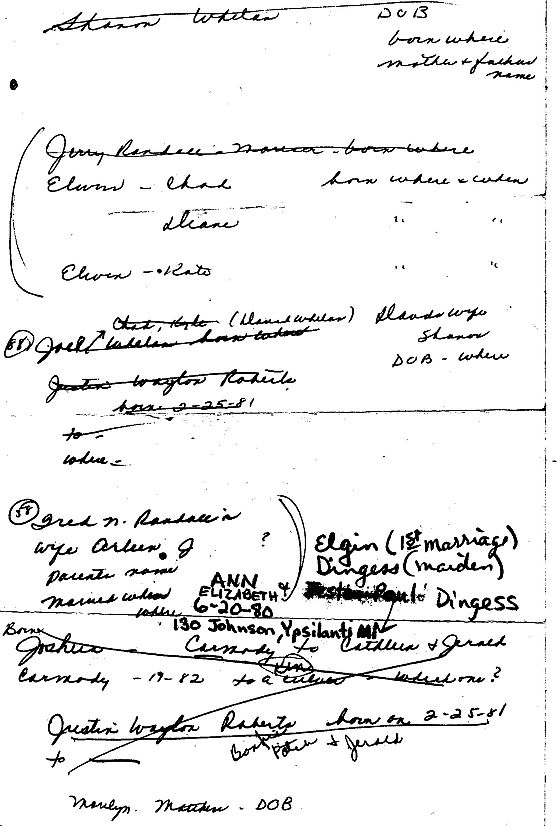 Shanon Whelan DOB
born where
mother & father
name
Jerry Randall - - born where
Elwin - Chad born where & when
Diane " "
Elwin - Kate " "
Chad, Kyle (Daniel Whelan) wife
58 Joel Whelan born where Shanon
DOB - where
Justin Wayton Roberts
born 2-25-81
to -
where -
58 Fred N. Randall
wife Arleen J ? Elgin (1st marriage)
parents name Dingess (maiden)
married when ANN
where ELIZABETH & Dingess
6-20-80
130 Johnson, Ypsilanti MI
Born
Joshua - Carmody to Cathleen & Jerald
Carmody - 19-82 to a which one?
Justin Wayton Roberts born on 2-25-81
to & Jerald
Marilyn. - DOB